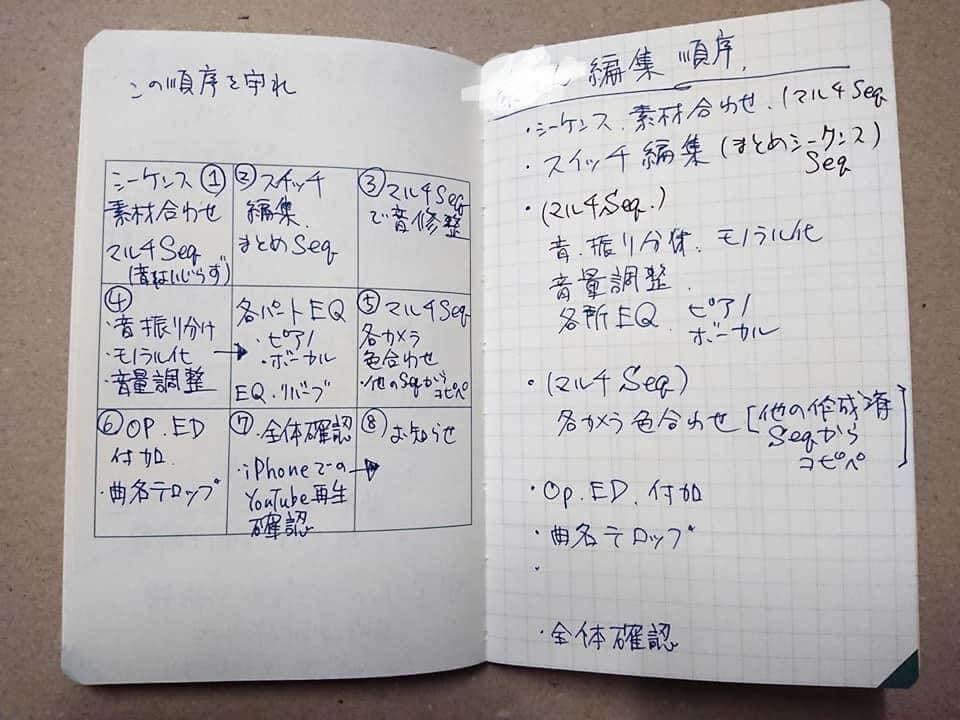 この順序を守れ
シーケンス ①
素材合わせ
マルチSeq
(音はいじらず)
② スイッチ
編集
まとめSeq
③ マルチSeq
で音修整
④
・音振り分け
・モノラル化 →
・音量調整
各パートEQ
・ピアノ
・ボーカル
EQ.リバーブ
⑤ マルチSeq
各カメラ
色合わせ
・他のSeqから
コピペ
⑥ OP.ED
付加.
・曲名テロップ
⑦ ・全体確認
・iPhoneでの →
YouTube再生
確認
⑧ お知らせ
編集 順序.
・シーケンス.素材合わせ.(マルチSeq
・スイッチ編集(まとめシークンス)
Seq
・(マルチSeq.)
音.振り分け.モノラル化
音量調整.
各所EQ. ピアノ
ボーカル
・(マルチSeq)
各カメラ色合わせ[他の作成済
Seqから
コピペ]
・Op.ED.付加
・曲名テロップ
・
・全体確認